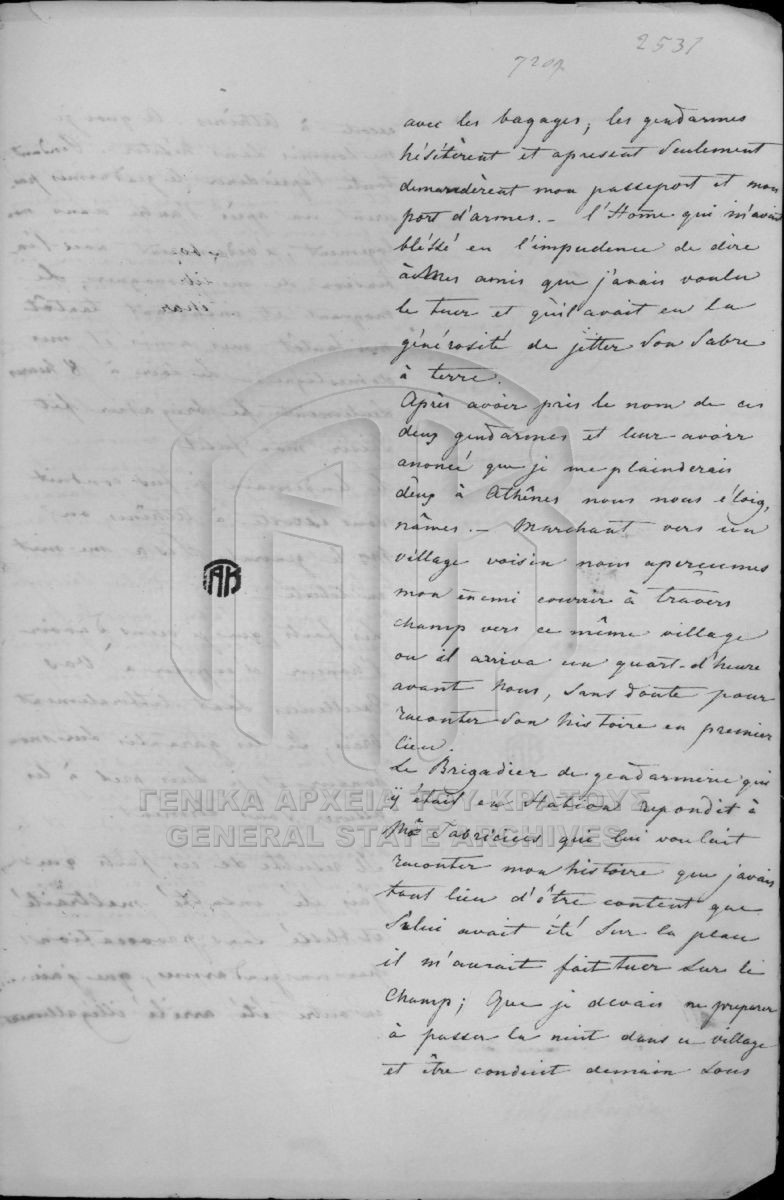 2531
720
avec les bagages; les gendarmes
hésitèrent et apresent seulement
demandèrent mon passeport et mon
port d'armes. — l'Home qui m'avait
bléssé eu l'impudence de dire
à Mes amis que j'avais voulu
le tuer et qu'il avait eu la
générosité de jetter son sabre
à terre.
Après avoir pris le nom de ces
deux gendarmes et leur avoir
anoncé que je me plainderais
d'eux à Athênes nous nous éloig,
nâmes. — Marchant vers un
village voisin nous aperçumes
mon enemi courrir à travers
champ vers ce même village
ou il arriva un quart-d'heure
avant nous, sans doute pour
raconter son histoire en premier
lieu.
Le Brigadier de gendarmerie qui
ÿ était en Station repondit à
Mr Fabricius qui lui voulait
raconter mon histoire que j'avais
tout lieu d'être content que
S'i lui avait été sur la place
il m'aurait fait tuer sur le
Champ; Que je devais me preparer
à passer la nuit dans ce village
et être conduit demain sous
ΓΑΚ
ΓΕΝΙΚΑ ΑΡΧΕΙΑ ΤΟΥ ΚΡΑΤΟΥΣ
GENERAL STATE ARCHIVES